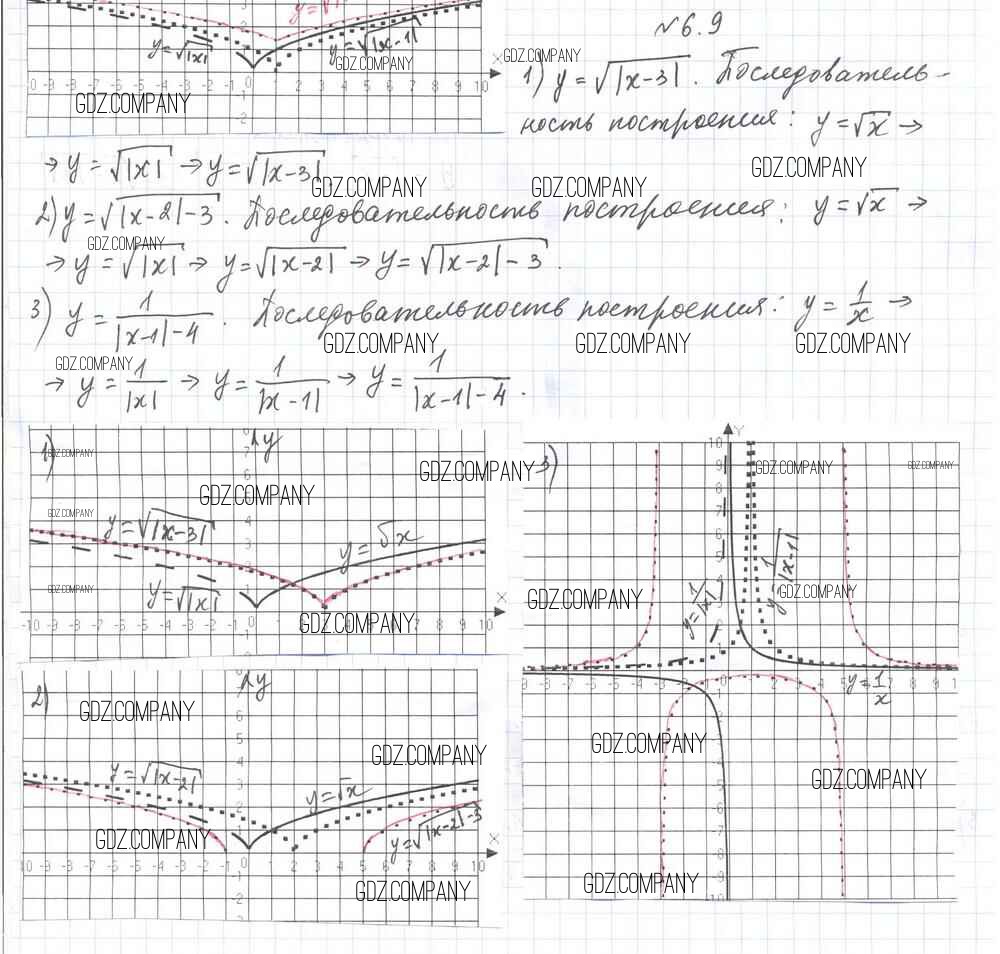 y=√|x| y=√|x-1|
GDZ.COMPANY
X
-10 -9 -8 -7 -6 -5 -4 -3 -2 -1 0 1 2 3 4 5 6 7 8 9 10
GDZ.COMPANY
№6.9
GDZ.COMPANY
1) y=√|x-3|. Последователь-
ность построения: y=√x →
→ y=√|x| → y=√|x-3|.
GDZ.COMPANY GDZ.COMPANY GDZ.COMPANY
2) y=√|x-2|-3. Последовательность построения: y=√x →
GDZ.COMPANY
→ y=√|x| → y=√|x-2| → y=√|x-2|-3.
3) y=1/(|x-1|-4). Последовательность построения: y=1/x →
GDZ.COMPANY GDZ.COMPANY GDZ.COMPANY
GDZ.COMPANY
→ y=1/|x| → y=1/|x-1| → y=1/(|x-1|-4).
1) y
GDZ.COMPANY GDZ.COMPANY GDZ.COMPANY
GDZ.COMPANY
y=√|x-3| y=√x
GDZ.COMPANY
y=√|x| X
GDZ.COMPANY
-10 -9 -8 -7 -6 -5 -4 -3 -2 -1 0 1 2 3 4 5 6 7 8 9 10
2) y
GDZ.COMPANY
GDZ.COMPANY
y=√|x-2| y=√x
GDZ.COMPANY
y=√|x-2|-3 X
-10 -9 -8 -7 -6 -5 -4 -3 -2 -1 0 1 2 3 4 5 6 7 8 9 10
GDZ.COMPANY
3) Y
GDZ.COMPANY GDZ.COMPANY
y=1/|x| y=1/|x-1|
GDZ.COMPANY GDZ.COMPANY
y=1/x
GDZ.COMPANY
GDZ.COMPANY
GDZ.COMPANY